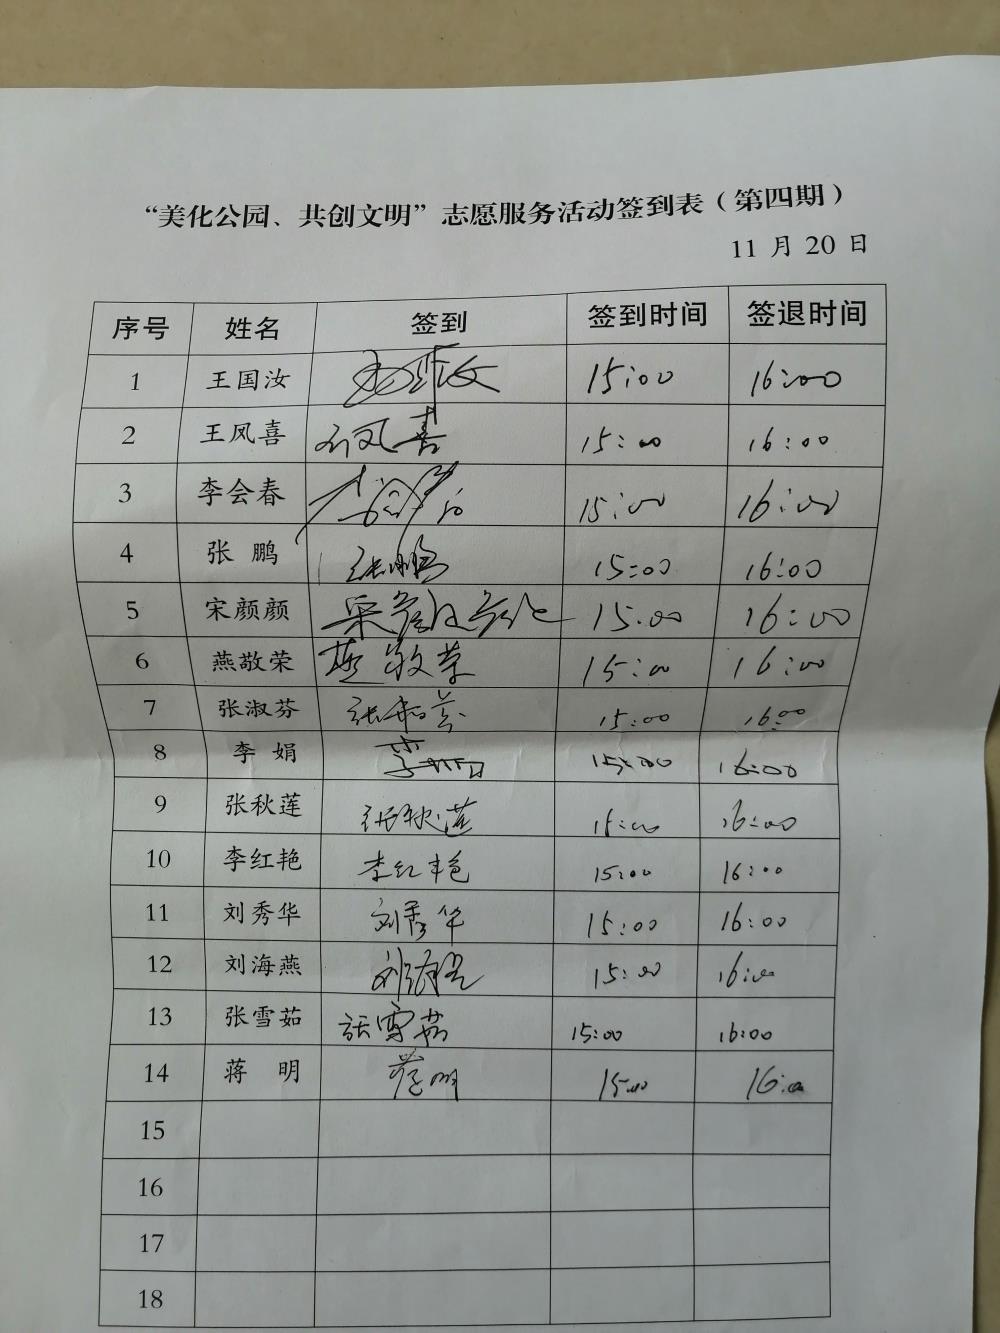 “美化公园、共创文明”志愿服务活动签到表（第四期）
11 月 20 日
序号 姓名 签到 签到时间 签退时间
1 王国汝 15:00 16:00
2 王凤喜 凤喜 15:00 16:00
3 李会春 李会 15:00 16:00
4 张 鹏 张鹏 15:00 16:00
5 宋颜颜 15:00 16:00
6 燕敬荣 燕敬荣 15:00 16:00
7 张淑芬 张淑芬 15:00 16:00
8 李 娟 李娟 15:00 16:00
9 张秋莲 张秋莲 15:00 16:00
10 李红艳 李红艳 15:00 16:00
11 刘秀华 刘秀华 15:00 16:00
12 刘海燕 刘海燕 15:00 16:00
13 张雪茹 张雪茹 15:00 16:00
14 蒋 明 蒋明 15:00 16:00
15
16
17
18